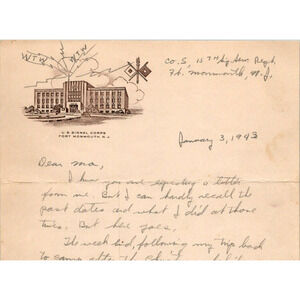 WTW WTW
Co. S, 15th Sig. Serv. Regt,
Ft. Monmouth, N.J.
U.S. SIGNAL CORPS
FORT MONMOUTH, N.J.
January 3, 1943
Dear Ma,
I know you are expecting a letter
from me. But I can hardly recall the
past dates and what I did at those
times. But here goes.
The week end, following my trip back
to camp after the